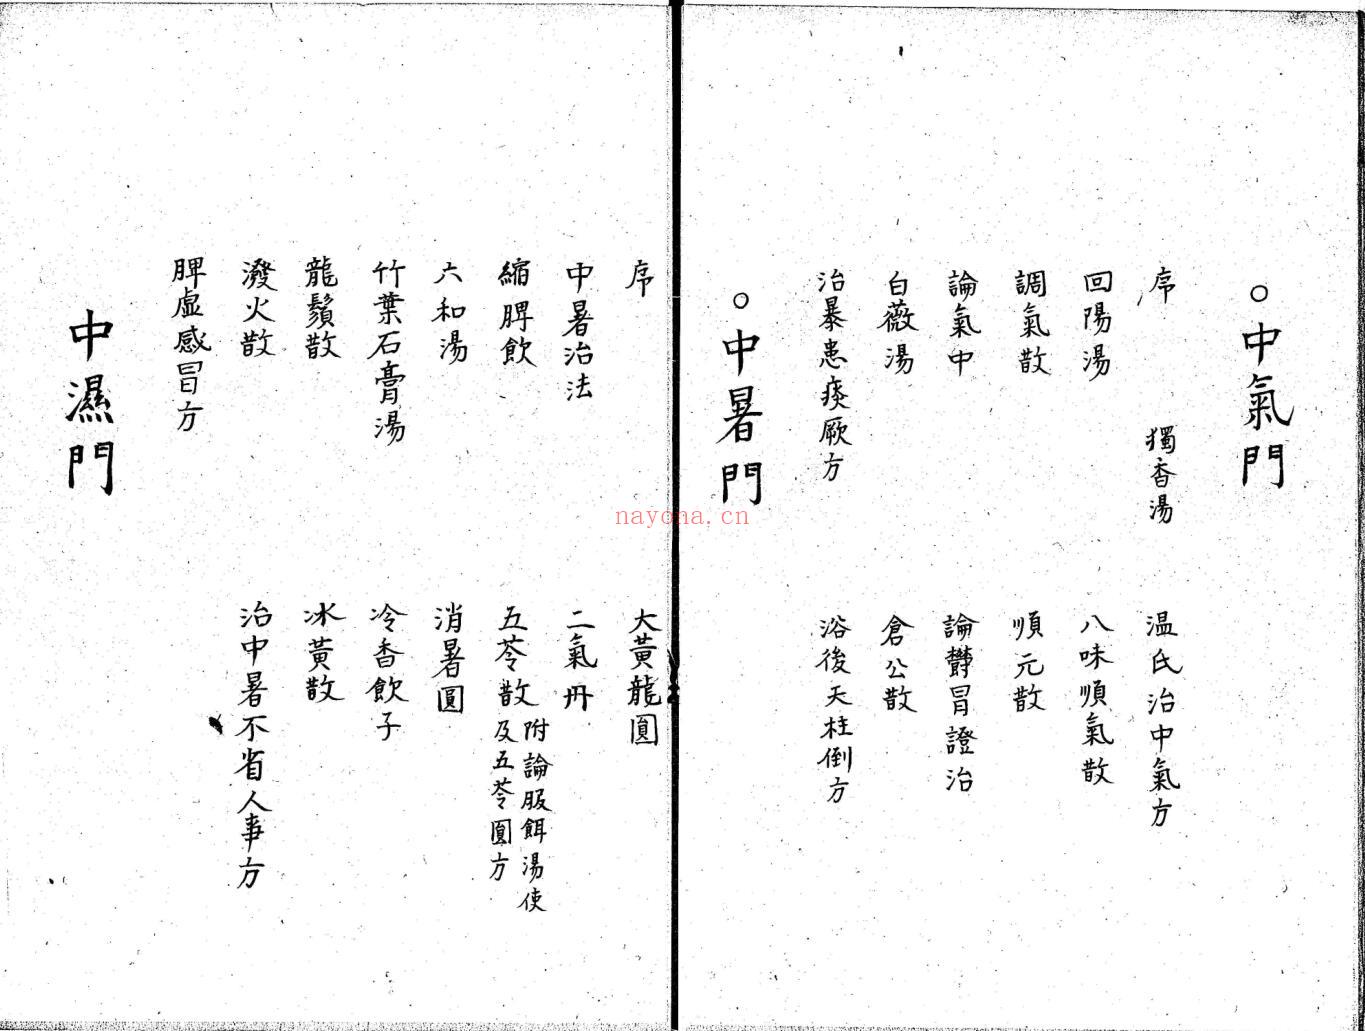 ○中氣門
序 獨香湯 温氏治中氣方
回陽湯 八味順氣散
調氣散 順元散
論氣中 論欝冒證治
白薇湯 倉公散
治暴患痰厥方 浴後天柱倒方
○中暑門
序 大黃龍圓
中暑治法 二氣丹
縮脾飲 五苓散 附論服餌湯使
及五苓圓方
六和湯 消暑圓
竹葉石膏湯 冷香飲子
龍鬚散 冰黃散
潑火散 治中暑不省人事方
脾虛感冒方
中濕門
nayona.cn